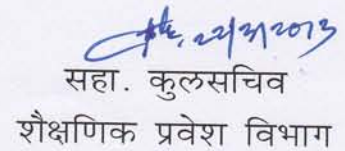 22/3/2013
सहा. कुलसचिव
शैक्षणिक प्रवेश विभाग